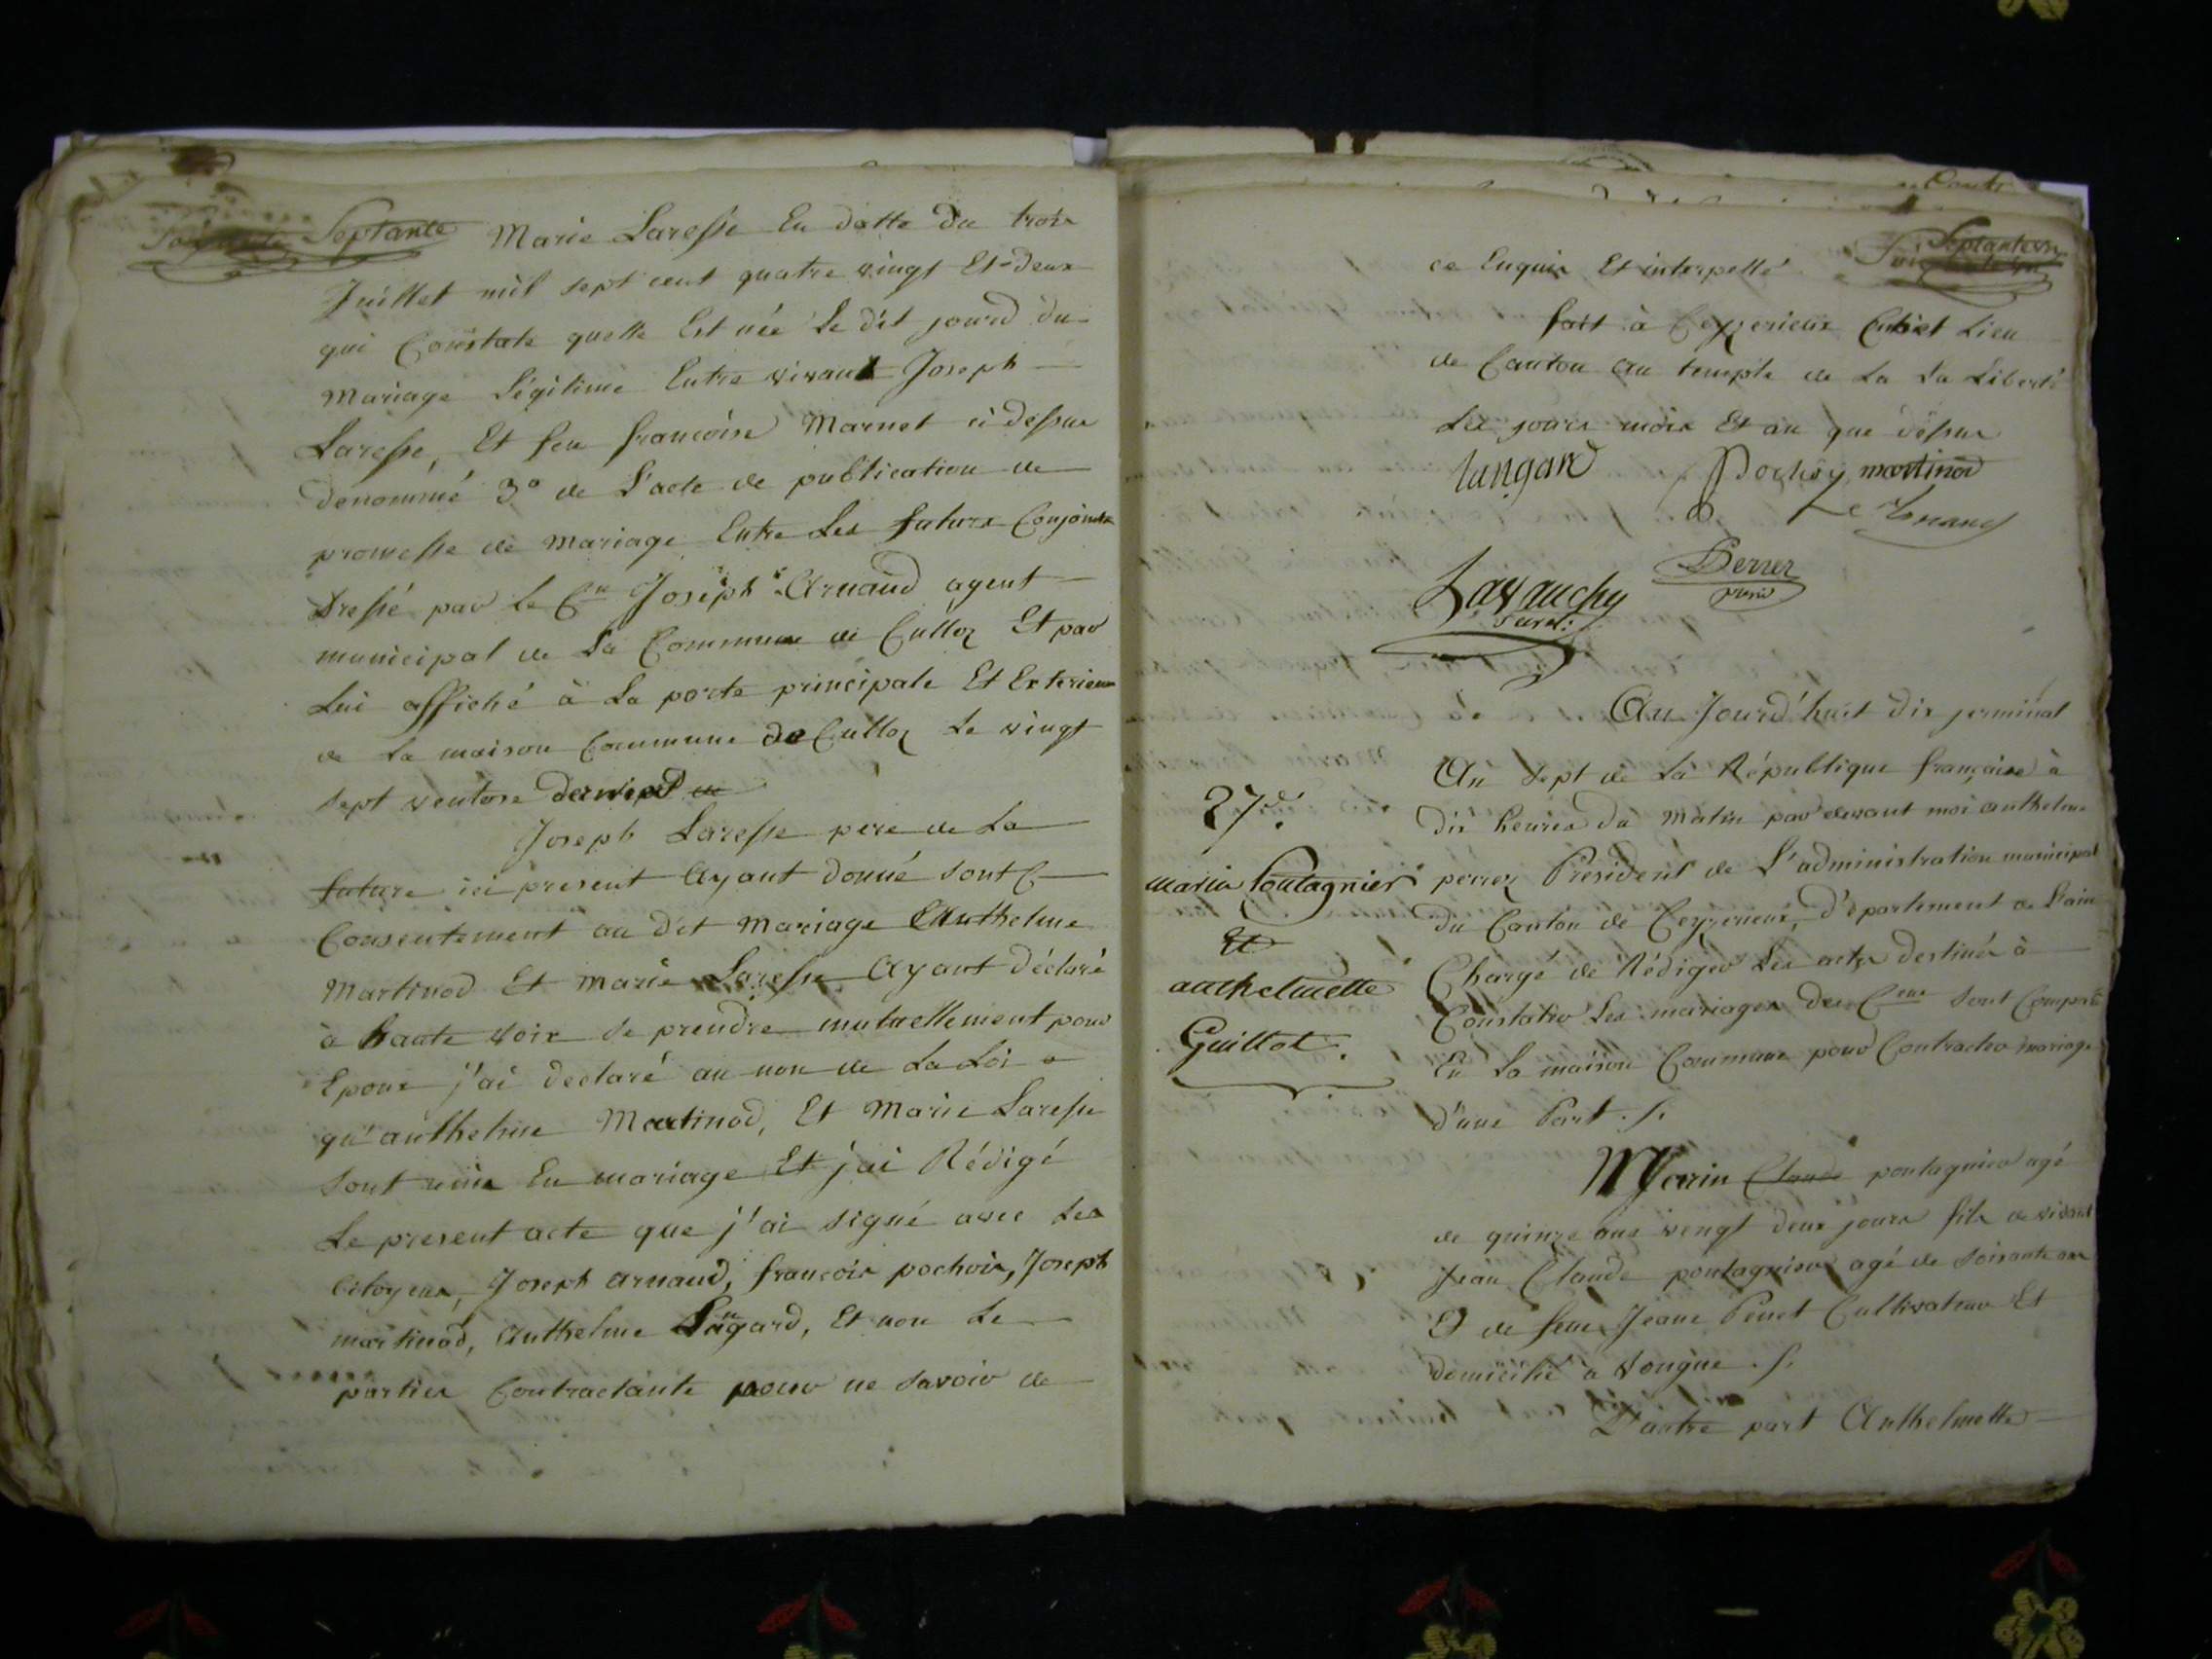 Septante
Marie Laresse En datte du trois
Juillet mil sept cent quatre vingt Et deux
qui Constate quelle Est née Le dit jourd du
mariage Légitime Entre vivant Joseph
Laresse, Et feu francoise Marnet ci dessus
denommé 3° de L'acte de publication de
promesse de mariage Entre Les futurs Conjoints
dressé par le Cen Joseph Arnaud agent
municipal de La Commune de Culloz Et par
Lui affiché à La porte principale Et Exterieure
de La maison Commune de Culloz Le vingt
sept ventose dernier
Joseph Laresse pere de La
future ici present Ayant donné sont
Consentement au dit mariage Anthelme
Martinod Et marie Laresse Ayant déclaré
à haute voix se prendre mutuellement pour
Epoux j'ai declaré au non de La Loi
qu'anthelme Martinod, Et Marie Laresse
sont unis En mariage Et j'ai Rédigé
Le present acte que j'ai signé avec Les
Citoyens, Joseph arnaud, francois pochoix, Joseph
martinod, Anthelme Lungard, Et non Les
parties Contractante pour ne savoir de
Septante un
ce Enquis Et interpellé
fait à Ceyzerieux Chef Lieu
de Canton au temple de La La Liberté
Les jours mois Et an que dessus
Lungard
Pochoy
martinod
Arnaud
Perrez
présid
Lavauchy
secret:
Au Jourd'huit dix jerminal
An sept de La République française à
dix heures du matin par devant moi anthelme
perrez Président de L'administration municipal
du Canton de Ceyzerieux, département de L'ain
Chargé de Rédiger Les actes destinés à
Constater Les mariages des Cens sont Comparu
En La maison Commune pour Contracter mariage
d'une Part
27e.
marin Pontagnier
Et
anthelmette
Guillot.
Marin Claude pontagnier agé
de quinze ans vengt deux jours fils de vivant
Jean Claude pontagnier agé de soixante ans
Et de feue Jeane Penet Cultivateur Et
domicilié à vongne
D'autre part Anthelmette